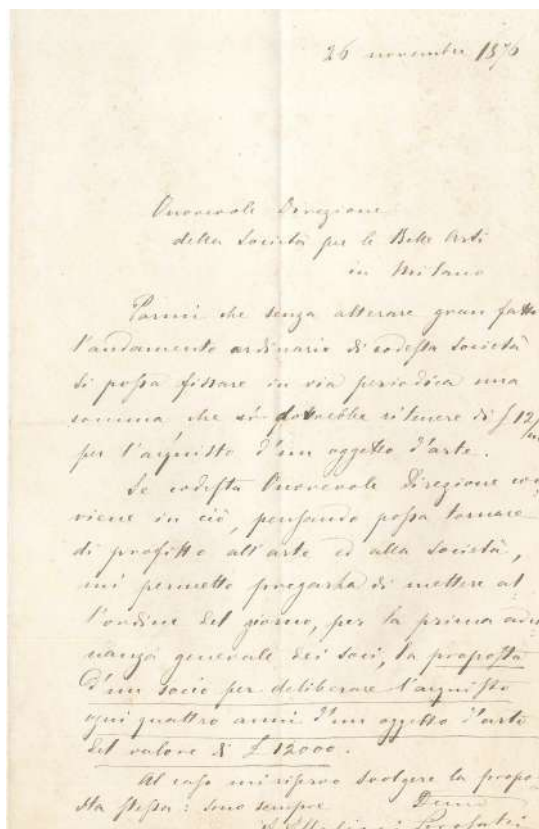 26 novembre 1876
Onorevole Direzione
della Società per le Belle Arti
in Milano
Parmi che senza alterare gran fatto
l'andamento ordinario di codesta Società
si possa fissare in via periodica una
somma che si potrebbe ritenere di £ 12/m
per l'acquisto d'un oggetto d'arte.
Se codesta Onorevole Direzione con
viene in ciò, pensando possa tornare
di profitto all'arte ed alla Società,
mi permetto pregarla di mettere al
l'ordine del giorno, per la prima adu
nanza generale dei soci, la proposta
d'un socio per deliberare l'acquisto
ogni quattro anni d'un oggetto d'arte
del valore di £ 12000.
Al caso mi riservo svolgere la propo
sta stessa: sono sempre